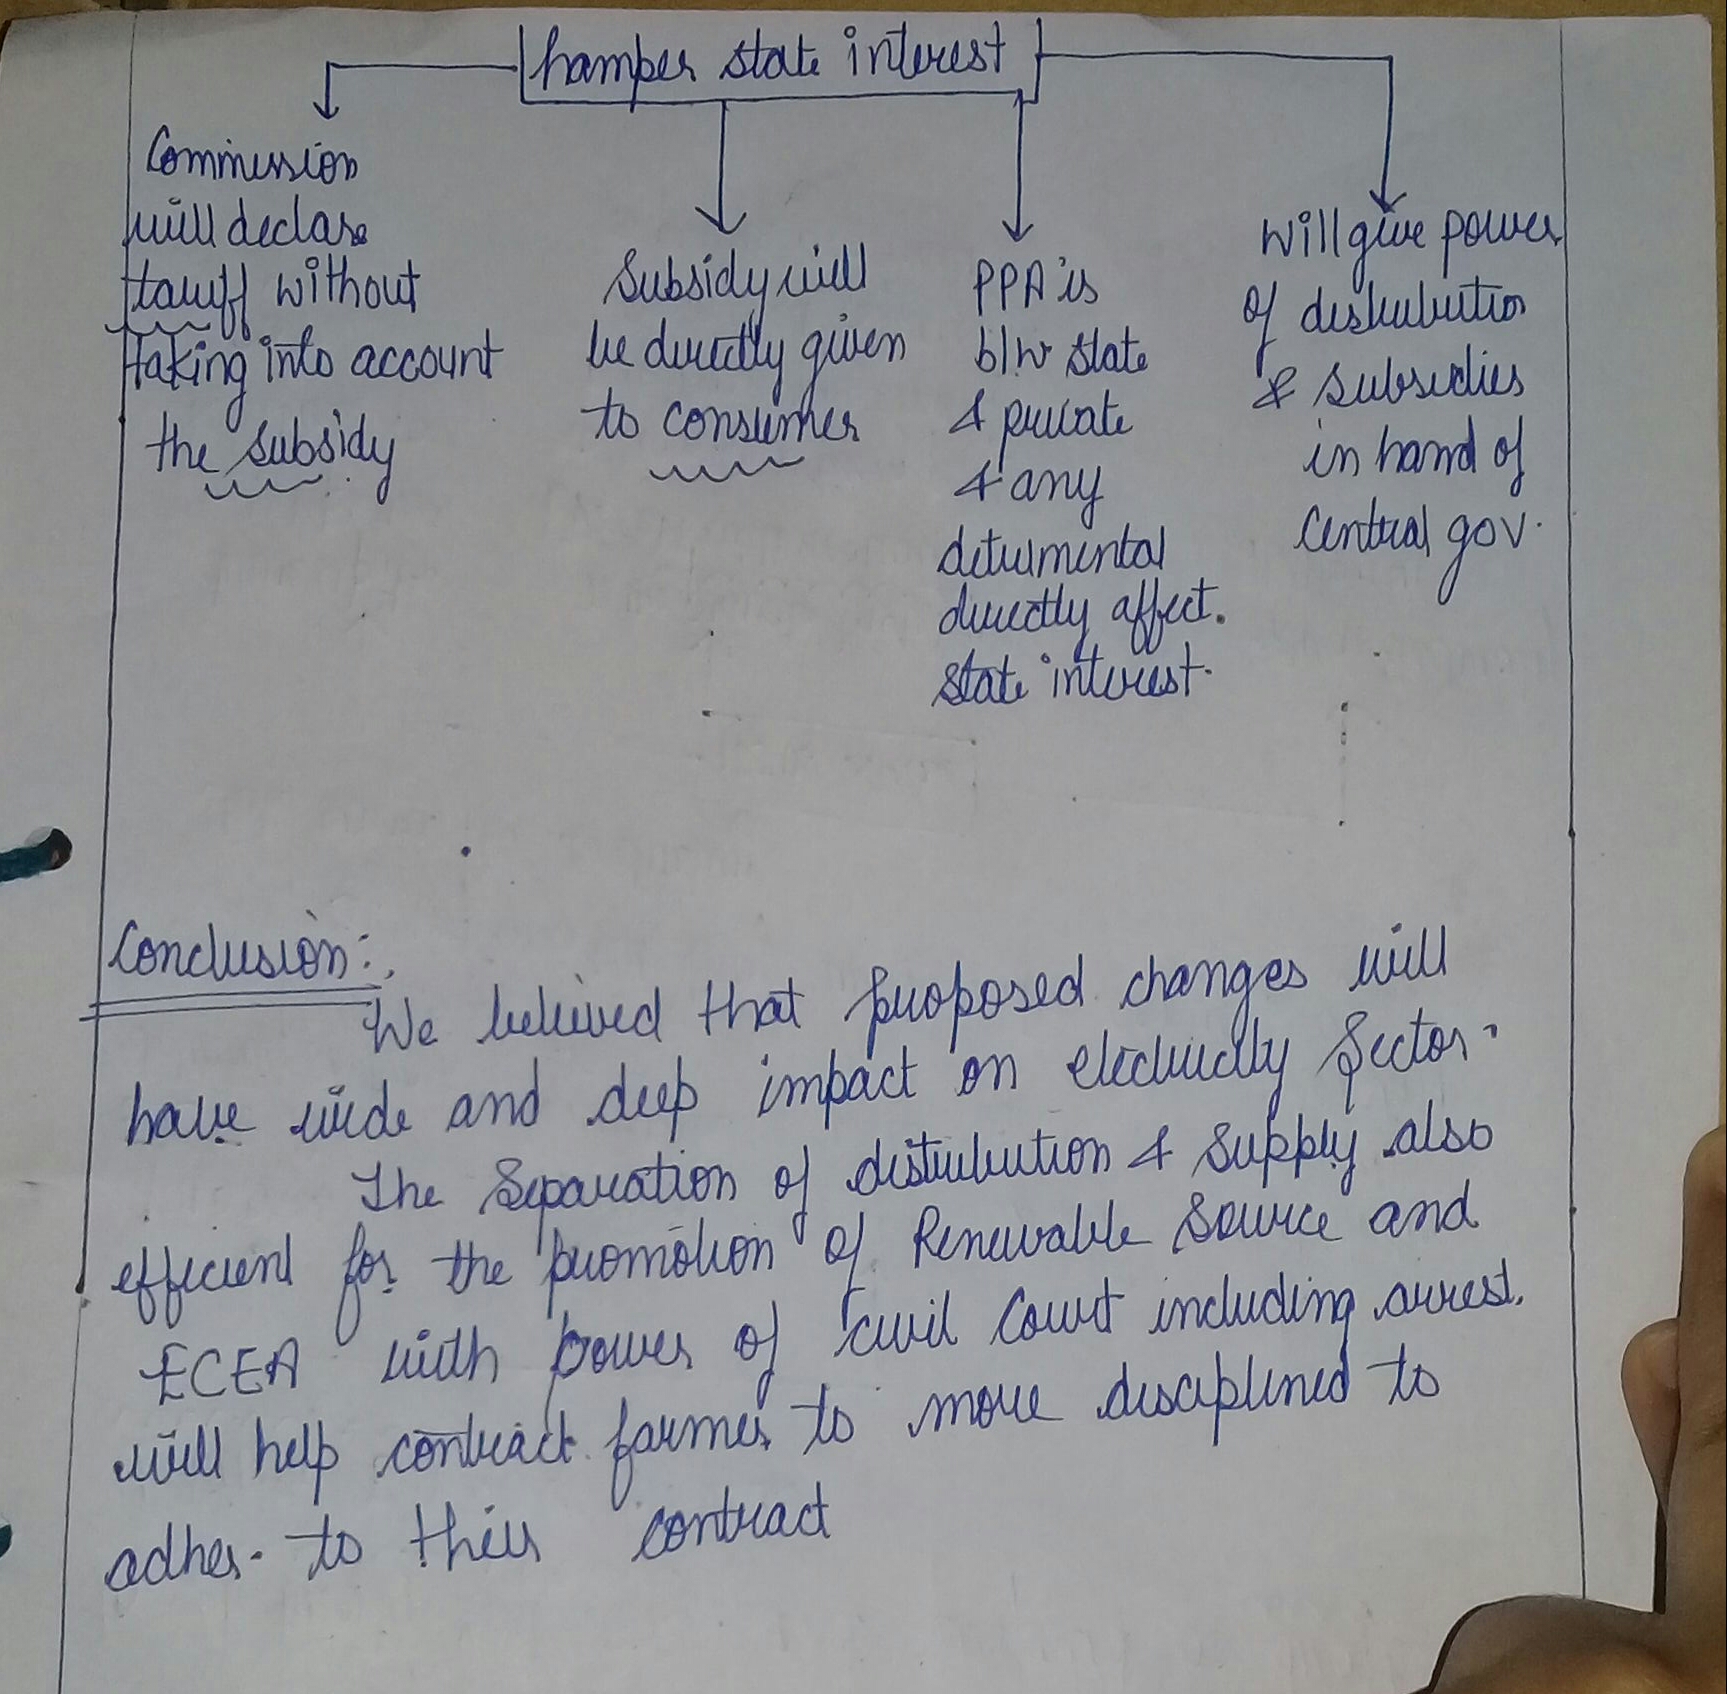 hamper state interest
Commission
will declare
tariff without
taking into account
the subsidy
Subsidy will
be directly given
to consumer
PPA is
b/w state
& private
& any
detrimental
directly affect.
state interest.
will give power
of distribution
& subsidies
in hand of
Central gov.
Conclusion:
We believed that proposed changes will
have wide and deep impact on electricity sector.
The Separation of distribution & Supply also
efficient for the promotion of Renewable Source and
ECEA with power of civil Court including arrest.
will help contract farmer to more disciplined to
adher. to their contract